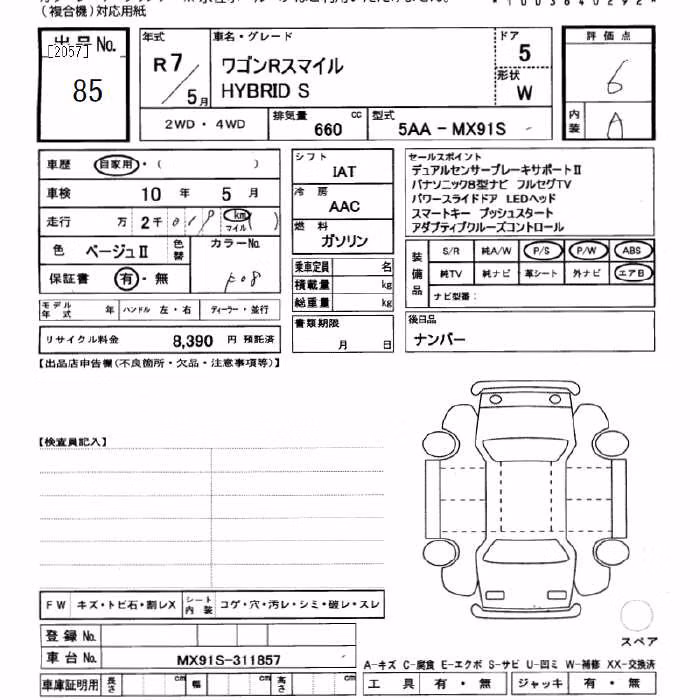 （複合機）対応用紙
*1003640292*
出品No.
[2057]
85
年式
R7/5月
車名・グレード
ワゴンRスマイル
HYBRID S
ドア
5
形状
W
評価点
6
内装
A
2WD・4WD
排気量
660
cc
型式
5AA-MX91S
車歴
自家用・（　　）
車検
10年 5月
走行
万 2千 018 km （　）
マイル
色
ベージュⅡ
色替
カラーNo.
保証書
有・無
モデル年式
年
ハンドル
左・右
ディーラー・並行
リサイクル料金
8,390
円 預託済
シフト
IAT
冷房
AAC
燃料
ガソリン
乗車定員
名
積載量
kg
総重量
kg
書類期限
月 日
セールスポイント
デュアルセンサーブレーキサポートⅡ
パナソニック8型ナビ フルセグTV
パワースライドドア LEDヘッド
スマートキー プッシュスタート
アダプティブクルーズコントロール
装備品
S/R
純A/W
P/S
P/W
ABS
純TV
純ナビ
革シート
外ナビ
エアB
ナビ型番：
後日品
ナンバー
【出品店申告欄(不良箇所・欠品・注意事項等)】
【検査員記入】
FW
キズ・トビ石・割レX
シート内装
コゲ・穴・汚レ・シミ・破レ・スレ
登録No.
車台No.
MX91S-311857
車庫証明用
長さ
cm
幅
cm
高さ
cm
スペア
A-キズ C-腐食 E-エクボ S-サビ U-凹ミ W-補修 XX-交換済
工具
有・無
ジャッキ
有・無